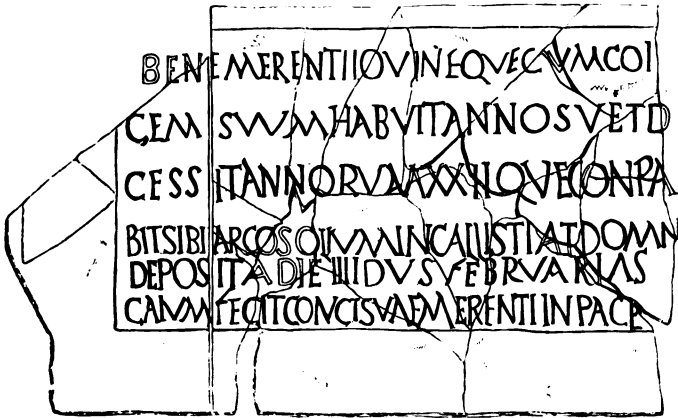 BENEMERENTIIOVINEQVECVMCOI
GEM SVVMHABVITANNOSVETD
CESSITANNORVMXXIIQVECONPA
BITSIBIARCOSOLIVMINCALLISTIATDOMN
DEPOSITADIEIIIIDVSFEBRVARIAS
CAIVMFECITCONCISVAEMERENTIINPACE